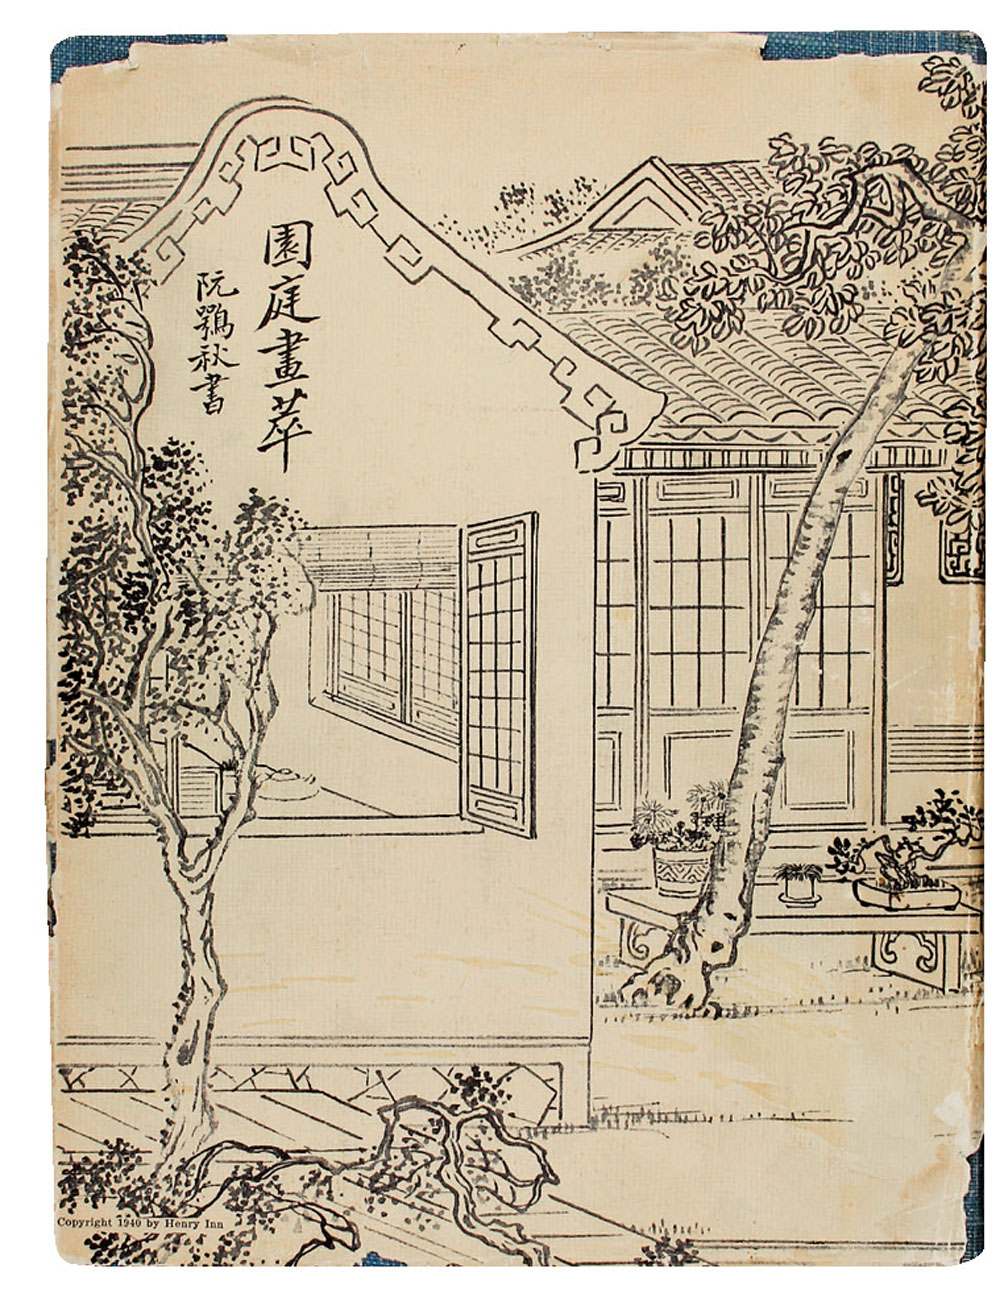 園庭畫萃
阮鶚秋書
Copyright 1940 by Henry Inn